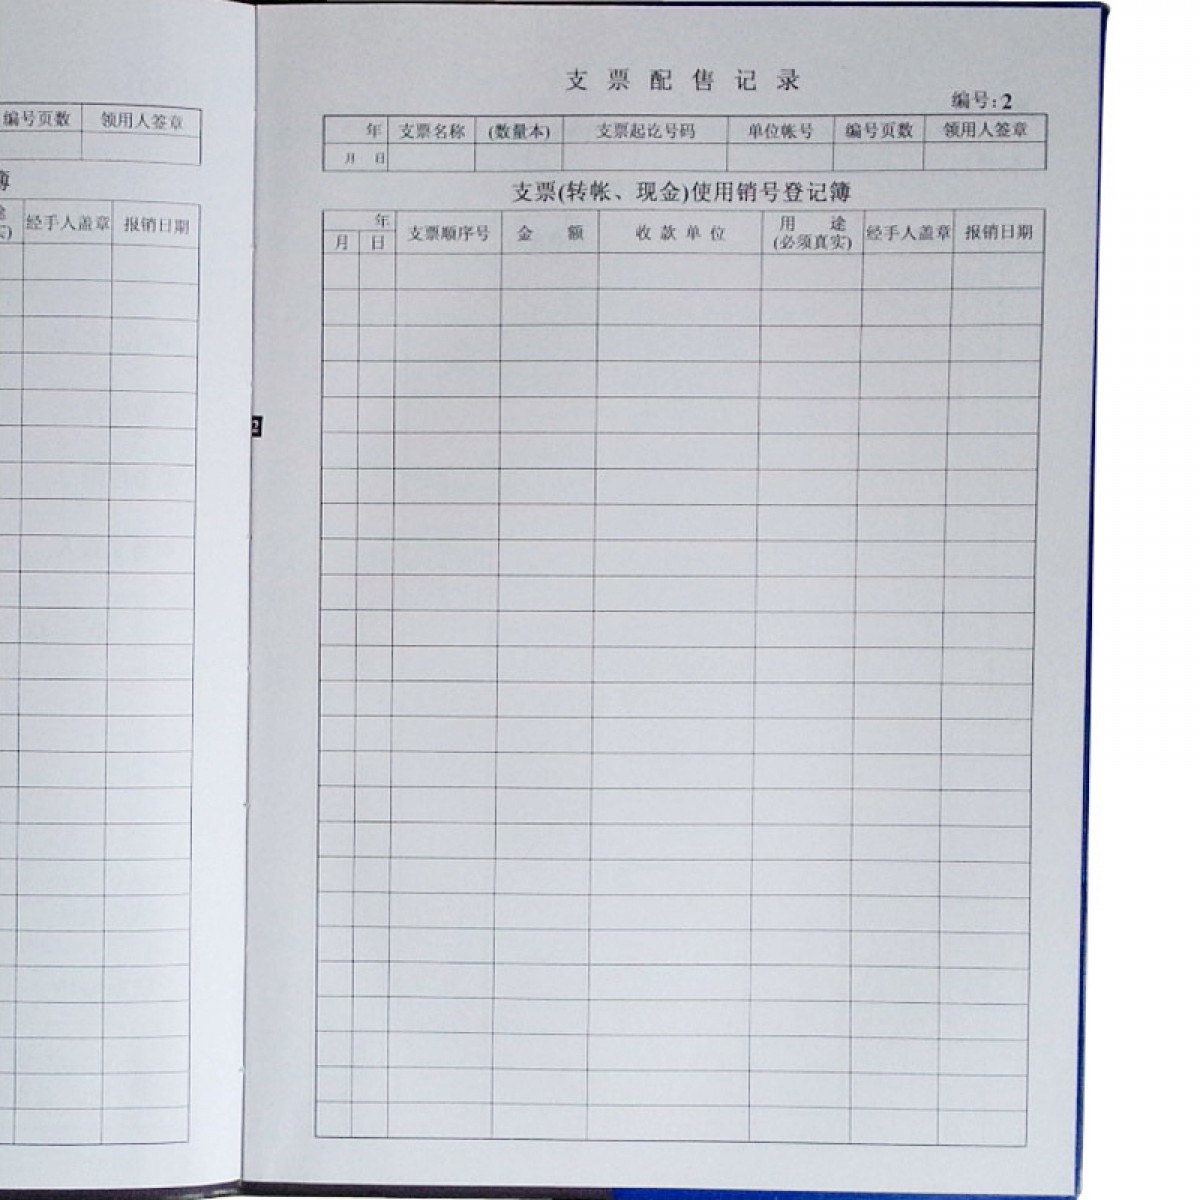 编号页数 领用人签章
簿
经手人盖章 报销日期
2
支票配售记录
编号:2
年 支票名称 (数量本) 支票起讫号码 单位帐号 编号页数 领用人签章
月 日
支票(转帐、现金)使用销号登记簿
年 支票顺序号 金 额 收款单位 用 途 经手人盖章 报销日期
月 日 (必须真实)